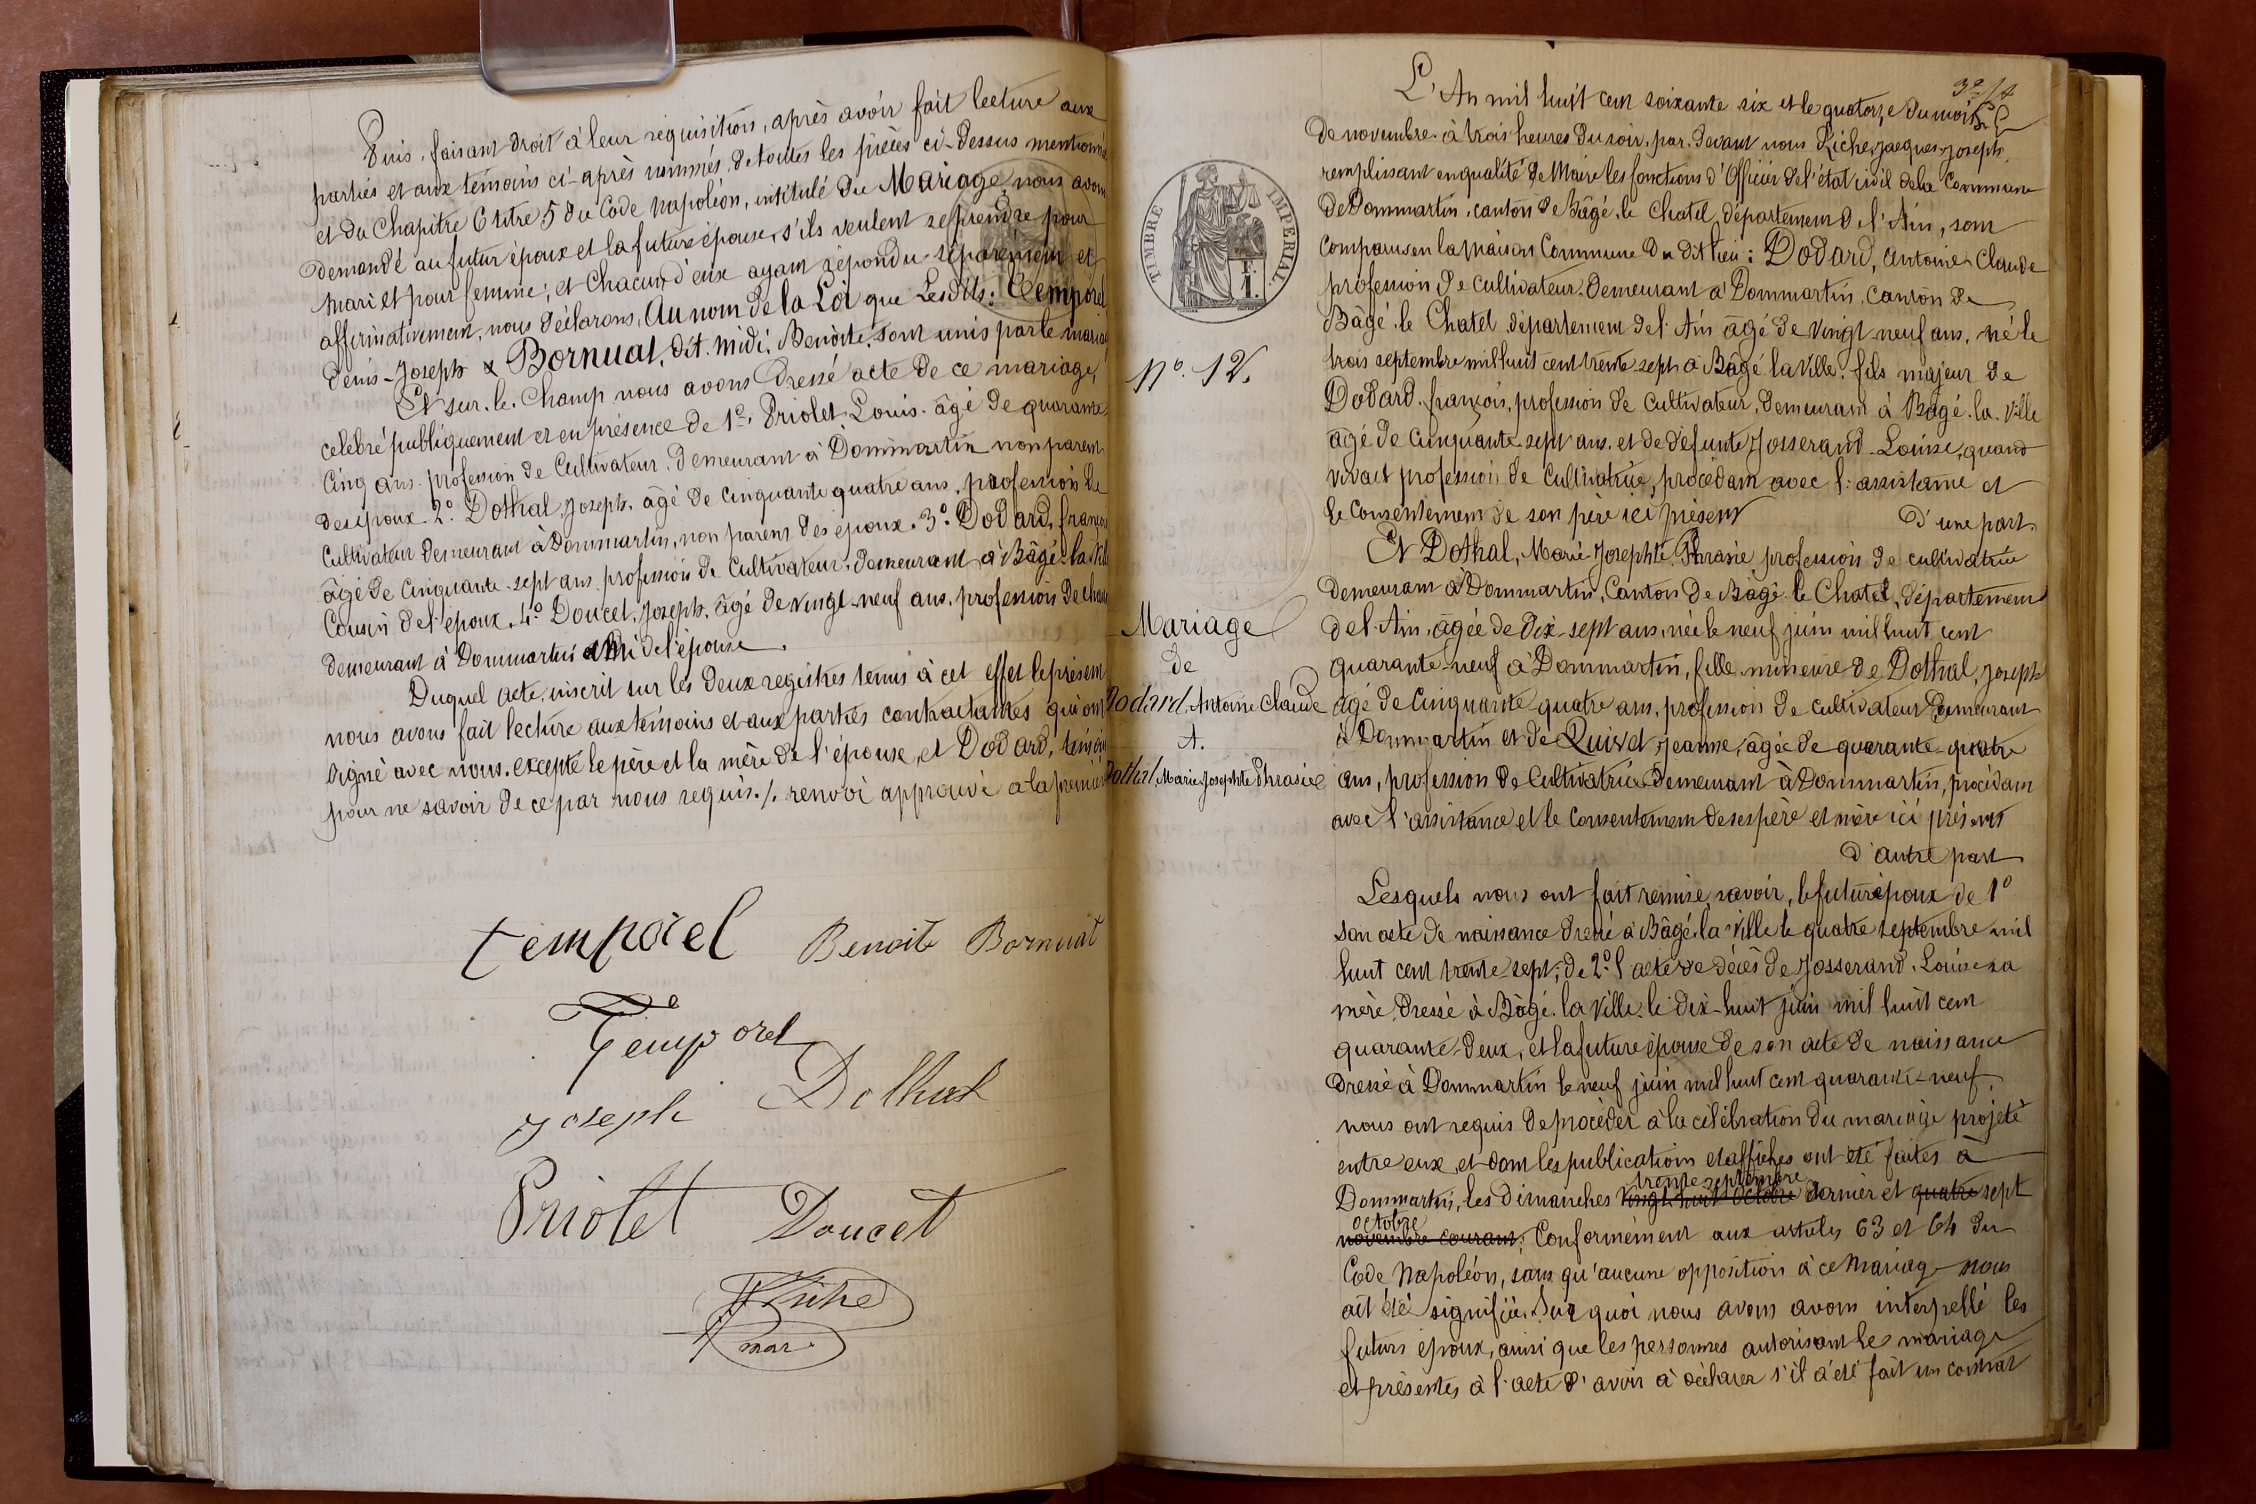 Puis, faisant droit à leur réquisition, après avoir fait lecture aux
parties et aux témoins ci-après nommés, de toutes les pièces ci-dessus mentionnées
et du Chapitre 6 titre 5 du Code Napoléon, intitulé du Mariage, nous avons
demandé au futur époux et la future épouse, s'ils veulent se prendre pour
mari et pour femme; et chacun d'eux ayant répondu séparément et
affirmativement, nous déclarons, Au nom de la Loi que Lesdits: Temporel
Denis-Joseph & Bornuat, dit. midi. Benoîte, sont unis par le mariage
Et sur-le-Champ nous avons Dressé acte de ce mariage,
célébré publiquement et en présence de 1º. Priolet Louis. âgé de quarante
cinq ans. profession de Cultivateur, demeurant à Dommartin non parent
des époux 2º. Dothal, Joseph, âgé de cinquante quatre ans, profession de
Cultivateur demeurant à Dommartin, non parent des époux. 3º. Dodard, françois
âgé de cinquante-sept ans profession de Cultivateur, demeurant à Bâgé-la-Ville
Cousin de l'époux, 4º Doucet, Joseph, âgé de vingt-neuf ans, profession de
demeurant à Dommartin ami de l'épouse.
Duquel acte, inscrit sur les deux registres tenus à cet effet le présent
nous avons fait lecture aux témoins et aux parties contractantes qui ont
signé avec nous. excepté le père et la mère de l'épouse, et Dodard, témoin
pour ne savoir de ce par nous requis./. renvoi approuvé à la première
temporel Benoite Bornuat
Temporel
Joseph Dothal
Priolet Doucet
Riche
mar
TIMBRE IMPERIAL
Nº. 12.
Mariage
de
Dodard, Antoine Claude
A.
Dothal, Marie Josephte Phrasie
L'An mil huit cent soixante six et le quatorze du mois
de novembre à trois heures du soir, par-devant nous Riche, Jacques-Joseph,
remplissant en qualité de Maire les fonctions d'Officier de l'état civil de la Commune
de Dommartin, canton de Bâgé-le-Chatel, département de l'Ain, sont
comparus en la Maison Commune du dit lieu: Dodard, Antoine Claude
profession de cultivateur, demeurant à Dommartin, canton de
Bâgé-le Chatel département de l'Ain âgé de vingt-neuf ans, né le
trois septembre mil huit cent trente sept à Bâgé la Ville. fils majeur de
Dodard. françois, profession de Cultivateur, demeurant à Bâgé-la-Ville
âgé de cinquante-sept ans. et de défunte Josserand-Louise, quand
vivait profession de cultivatrice, procédant avec l'assistance et
le Consentement de son père ici présent
D'une part.
Et Dothal, Marie Josephte Phrasie profession de cultivatrice
demeurant à Dommartin, Canton de Bâgé-le Chatel, département
de l'Ain, âgée de dix-sept ans, née le neuf juin mil huit cent
quarante-neuf à Dommartin, fille mineure de Dothal, Joseph
âgé de cinquante quatre ans, profession de cultivateur demeurant
à Dommartin et de Quivet, Jeanne, âgée de quarante-quatre
ans, profession de Cultivatrice demeurant à Dommartin, procédant
avec l'assistance et le consentement de ses père et mère ici présents
d'autre part
Lesquels nous ont fait remise, savoir, le futur époux de 1º
son acte de naissance dressé à Bâgé-la-Ville le quatre septembre mil
huit cent trente-sept; de 2º. l'acte de décès de Josserand. Louise sa
mère Dressé à Bâgé-la Ville. le dix-huit juin mil huit cent
quarante-deux, et la future épouse de son acte de naissance
Dressé à Dommartin le neuf juin mil huit cent quarante-neuf.
nous ont requis de procéder à la célébration du mariage projeté
entre eux, et dont les publications et affiches ont été faites à
trente septembre
Dommartin, les dimanches vingt huit octobre dernier et quatre sept
octobre
novembre courant; Conformément aux articles 63 et 64 du
Code Napoléon, sans qu'aucune opposition à ce Mariage nous
ait été signifiée. Sur quoi nous avons avons interpellé les
futurs époux, ainsi que les personnes autorisant le mariage
et présentes à l'acte d'avoir à déclarer s'il a été fait un contrat